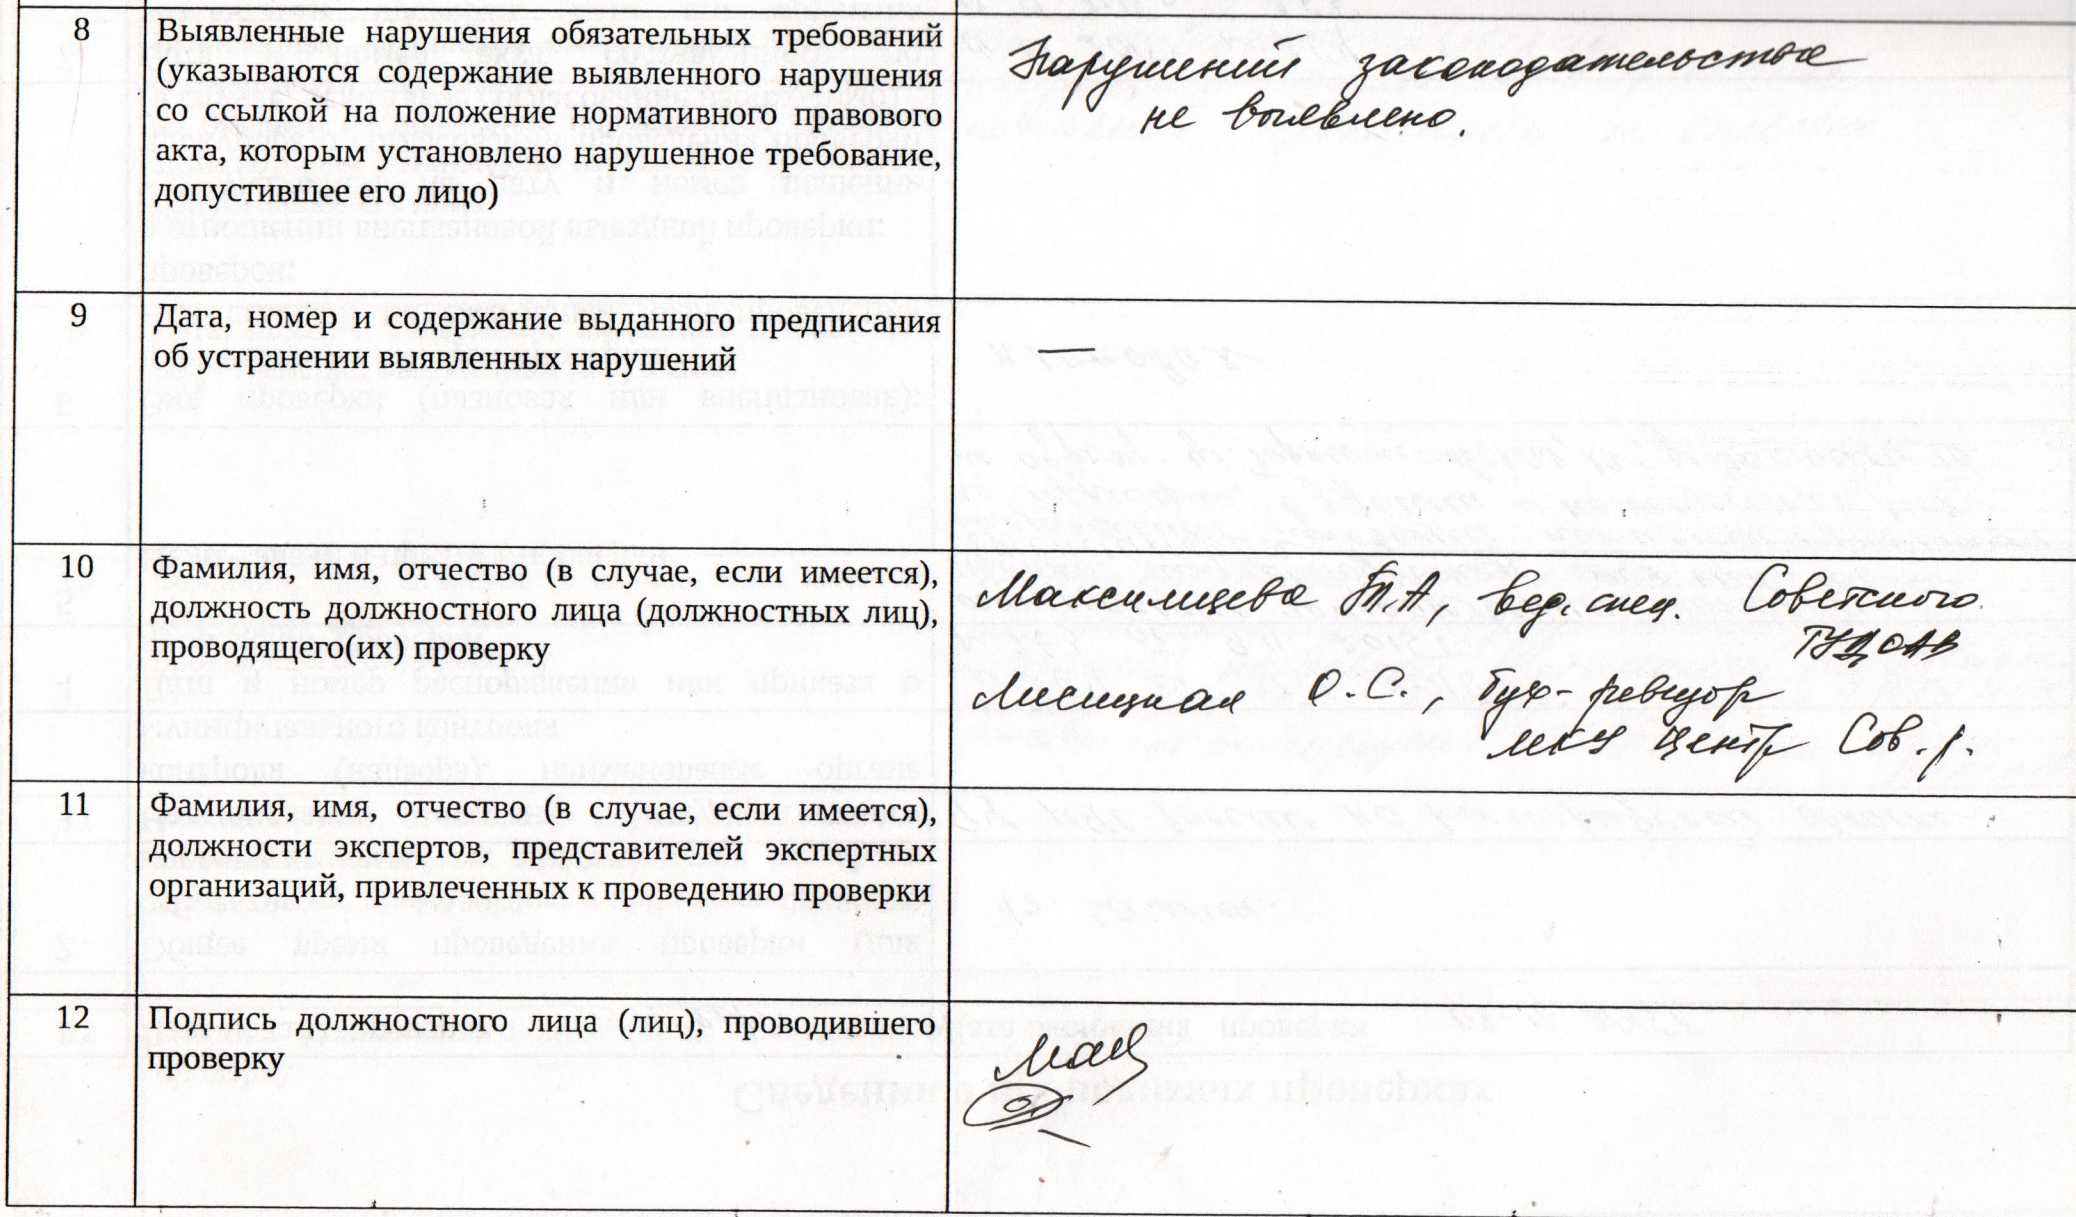 8
Выявленные нарушения обязательных требований
(указываются содержание выявленного нарушения
со ссылкой на положение нормативного правового
акта, которым установлено нарушенное требование,
допустившее его лицо)
Нарушений законодательства
не выявлено.
9
Дата, номер и содержание выданного предписания
об устранении выявленных нарушений
—
10
Фамилия, имя, отчество (в случае, если имеется),
должность должностного лица (должностных лиц),
проводящего(их) проверку
Т.А, вед. спец. Советского
Лисицкая О.С., бух-ревизор
МКУ Центр Сов. р.
11
Фамилия, имя, отчество (в случае, если имеется),
должности экспертов, представителей экспертных
организаций, привлеченных к проведению проверки
12
Подпись должностного лица (лиц), проводившего
проверку